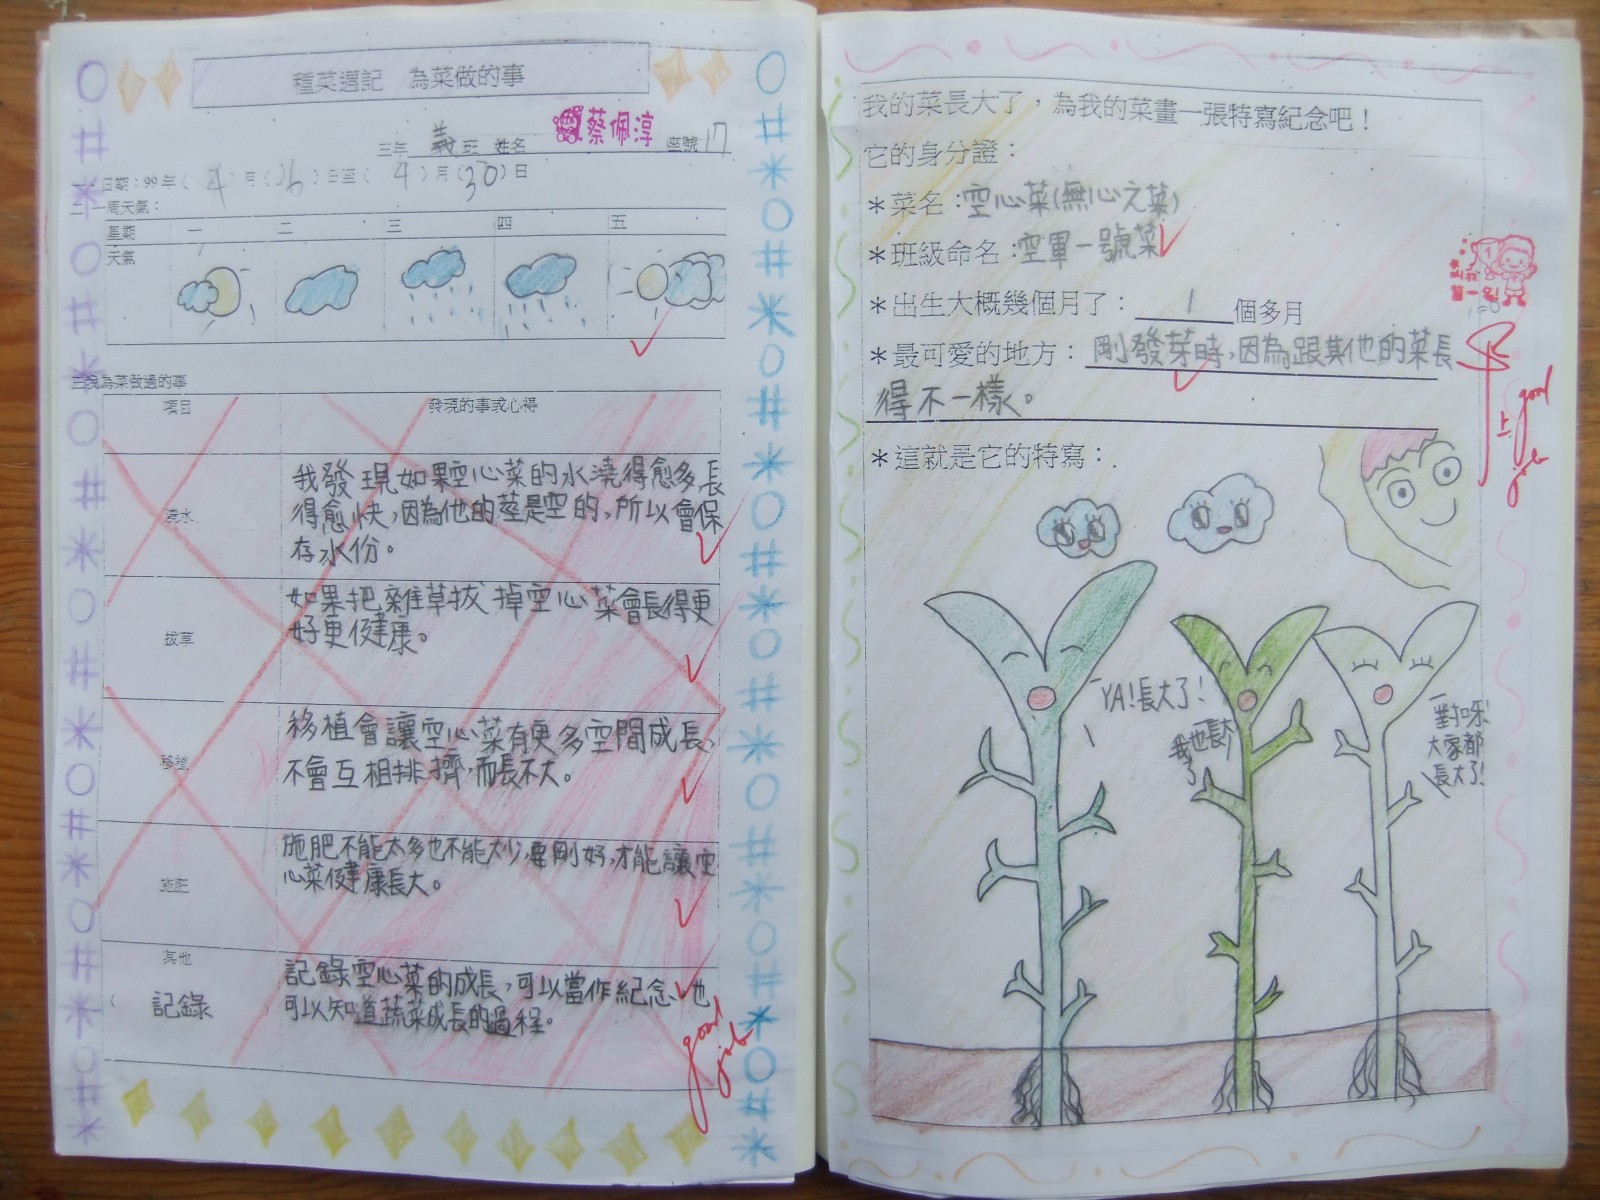 種菜週記　為菜做的事
三年 義 班 姓名 蔡佩淳 座號 17
日期：99年(4)月(26)日至(4)月(30)日
二 一周天氣：
星期 一 二 三 四 五
天氣
三 我為菜做過的事
項目 發現的事或心得
澆水
我發現如果空心菜的水澆得愈多長
得愈快，因為他的莖是空的，所以會保
存水份。
拔草
如果把雜草拔掉空心菜會長得更
好更健康。
移植
移植會讓空心菜有更多空間成長，
不會互相排擠，而長不大。
施肥
施肥不能太多也不能太少，要剛好，才能讓空
心菜健康長大。
其他
(記錄)
記錄空心菜的成長，可以當作紀念，也
可以知道蔬菜成長的過程。
good
job
我的菜長大了，為我的菜畫一張特寫紀念吧！
它的身分證：
＊菜名：空心菜(無心之菜)
＊班級命名：空軍一號菜
＊出生大概幾個月了：1個多月
＊最可愛的地方：剛發芽時，因為跟其他的菜長
得不一樣。
＊這就是它的特寫：
第一名！
上
good
job
YA！長大了！
我也長大
了
對呀！
大家都
長大了！